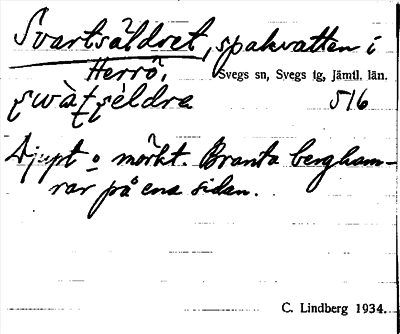 Svartsäldret, spakvatten i
Herrö. Svegs sn, Svegs tg, Jämtl. län.
516
Djupt o mörkt. Branta bergham-
rar på ena sidan.
C. Lindberg 1934.